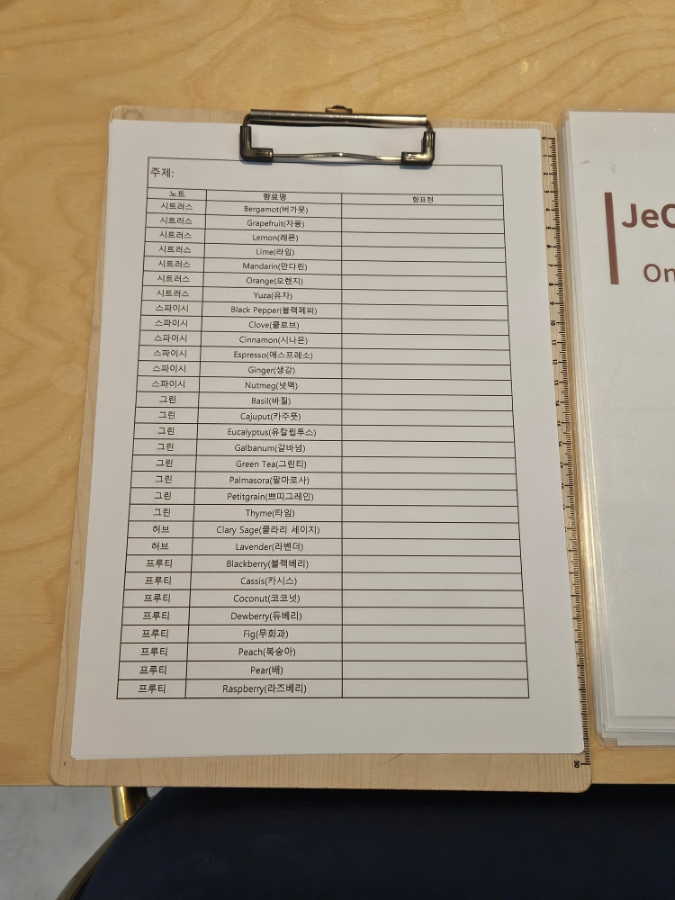 주제:
노트 향료명 향표현
시트러스 Bergamot(버가못)
시트러스 Grapefruit(자몽)
시트러스 Lemon(레몬)
시트러스 Lime(라임)
시트러스 Mandarin(만다린)
시트러스 Orange(오렌지)
시트러스 Yuza(유자)
스파이시 Black Pepper(블랙페퍼)
스파이시 Clove(클로브)
스파이시 Cinnamon(시나몬)
스파이시 Espresso(에스프레소)
스파이시 Ginger(생강)
스파이시 Nutmeg(넛맥)
그린 Basil(바질)
그린 Cajuput(카주풋)
그린 Eucalyptus(유칼립투스)
그린 Galbanum(갈바넘)
그린 Green Tea(그린티)
그린 Palmasora(팔마로사)
그린 Petitgrain(쁘띠그레인)
그린 Thyme(타임)
허브 Clary Sage(클라리 세이지)
허브 Lavender(라벤더)
프루티 Blackberry(블랙베리)
프루티 Cassis(카시스)
프루티 Coconut(코코넛)
프루티 Dewberry(듀베리)
프루티 Fig(무화과)
프루티 Peach(복숭아)
프루티 Pear(배)
프루티 Raspberry(라즈베리)
JeC
On
30